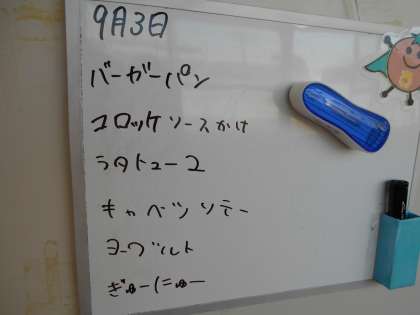 9月3日
バーガーパン
コロッケソースかけ
ラタトューユ
キャベツソテー
ヨーグルト
ぎゅーにゅー